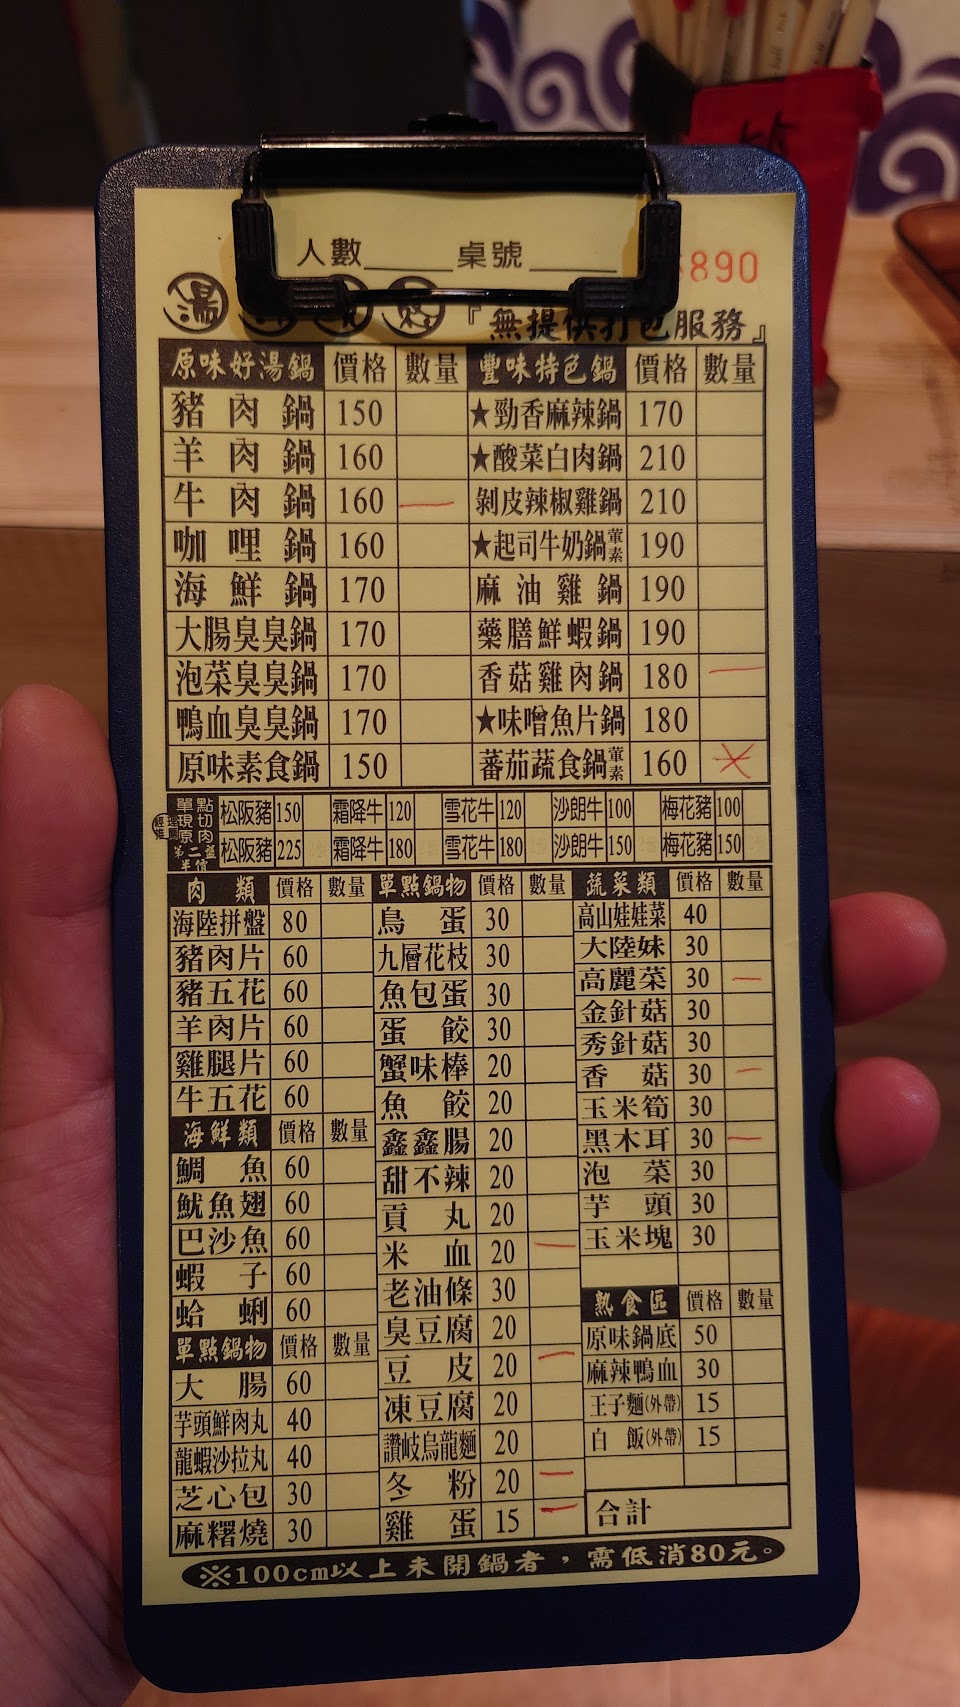 人數 桌號 890
湯 『無提供打包服務』
原味好湯鍋 價格 數量 豐味特色鍋 價格 數量
豬肉鍋 150 ★勁香麻辣鍋 170
羊肉鍋 160 ★酸菜白肉鍋 210
牛肉鍋 160 一 剝皮辣椒雞鍋 210
咖哩鍋 160 ★起司牛奶鍋葷素 190
海鮮鍋 170 麻油雞鍋 190
大腸臭臭鍋 170 藥膳鮮蝦鍋 190
泡菜臭臭鍋 170 香菇雞肉鍋 180 一
鴨血臭臭鍋 170 ★味噌魚片鍋 180
原味素食鍋 150 蕃茄蔬食鍋葷素 160
單點現切原肉
松阪豬 150 霜降牛 120 雪花牛 120 沙朗牛 100 梅花豬 100
第二盤半價
松阪豬 225 霜降牛 180 雪花牛 180 沙朗牛 150 梅花豬 150
肉類 價格 數量
海陸拼盤 80
豬肉片 60
豬五花 60
羊肉片 60
雞腿片 60
牛五花 60
海鮮類 價格 數量
鯛魚 60
魷魚翅 60
巴沙魚 60
蝦子 60
蛤蜊 60
單點鍋物 價格 數量
大腸 60
芋頭鮮肉丸 40
龍蝦沙拉丸 40
芝心包 30
麻糬燒 30
單點鍋物 價格 數量
鳥蛋 30
九層花枝 30
魚包蛋 30
蛋餃 30
蟹味棒 20
魚餃 20
鑫鑫腸 20
甜不辣 20
貢丸 20
米血 20 一
老油條 30
臭豆腐 20
豆皮 20 一
凍豆腐 20
讚岐烏龍麵 20
冬粉 20 一
雞蛋 15 一
蔬菜類 價格 數量
高山娃娃菜 40
大陸妹 30
高麗菜 30 一
金針菇 30
秀針菇 30
香菇 30 一
玉米筍 30
黑木耳 30 一
泡菜 30
芋頭 30
玉米塊 30
熟食區 價格 數量
原味鍋底 50
麻辣鴨血 30
王子麵(外帶) 15
白飯(外帶) 15
合計
※100cm以上未開鍋者，需低消80元。